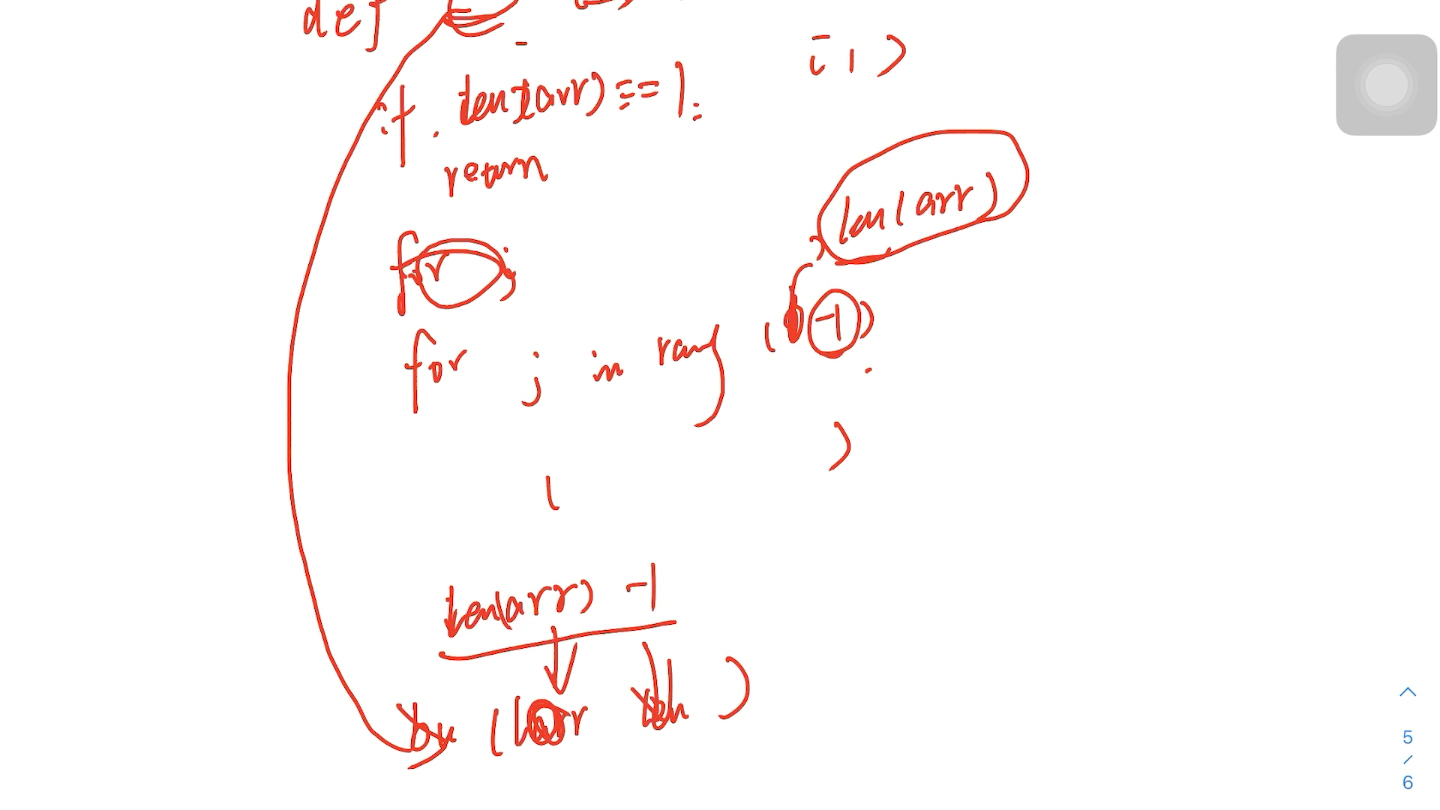 def
[1)
if len(arr) == 1:
return
len(arr)
for j
-1)
for j in rang (
)
(
len(arr) -1
( arr )
5
/
6